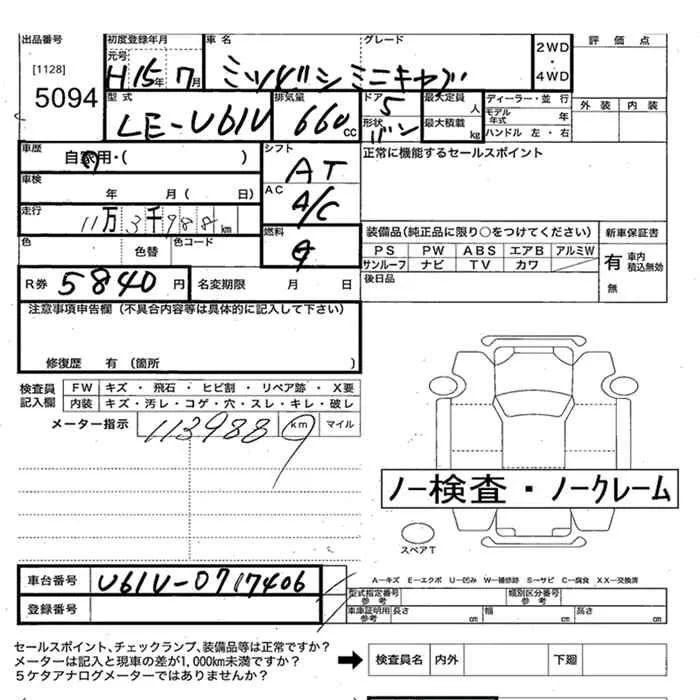 出品番号
[1128]
5094
初度登録年月
元号
H15年7月
車名
ミツビシ ミニキャブ
グレード
2WD
・
4WD
評価点
外装 内装
型式
LE-U61V
排気量
660cc
ドア
5
形状
バン
最大定員
人
最大積載
kg
ディーラー・並行
モデル年式 年
ハンドル 左・右
車歴
自家用・( )
シフト
AT
正常に機能するセールスポイント
車検
年 月( 日)
AC
A/C
走行
11万3千988km
色
色替
色コード
燃料
装備品(純正品に限り○をつけてください)
PS PW ABS エアB アルミW
サンルーフ ナビ TV カワ
新車保証書
有 車内積込無効
無
R券
5840円
名変期限 月 日
後日品
注意事項申告欄(不具合内容等は具体的に記入して下さい)
修復歴 有(箇所 )
検査員記入欄
FW キズ・飛石・ヒビ割・リペア跡・X要
内装 キズ・汚レ・コゲ・穴・スレ・キレ・破レ
メーター指示
113988
km マイル
ノー検査・ノークレーム
スペアT
車台番号
U61V-0717406
登録番号
A−キズ E−エクボ U−凹み W−補修跡 S−サビ C−腐食 XX−交換済
型式指定番号参考
類別区分番号参考
車庫証明用参考 長さ cm 幅 cm 高さ cm
セールスポイント、チェックランプ、装備品等は正常ですか?
メーターは記入と現車の差が1,000km未満ですか?
5ケタアナログメーターではありませんか?
➡
検査員名 内外 下廻